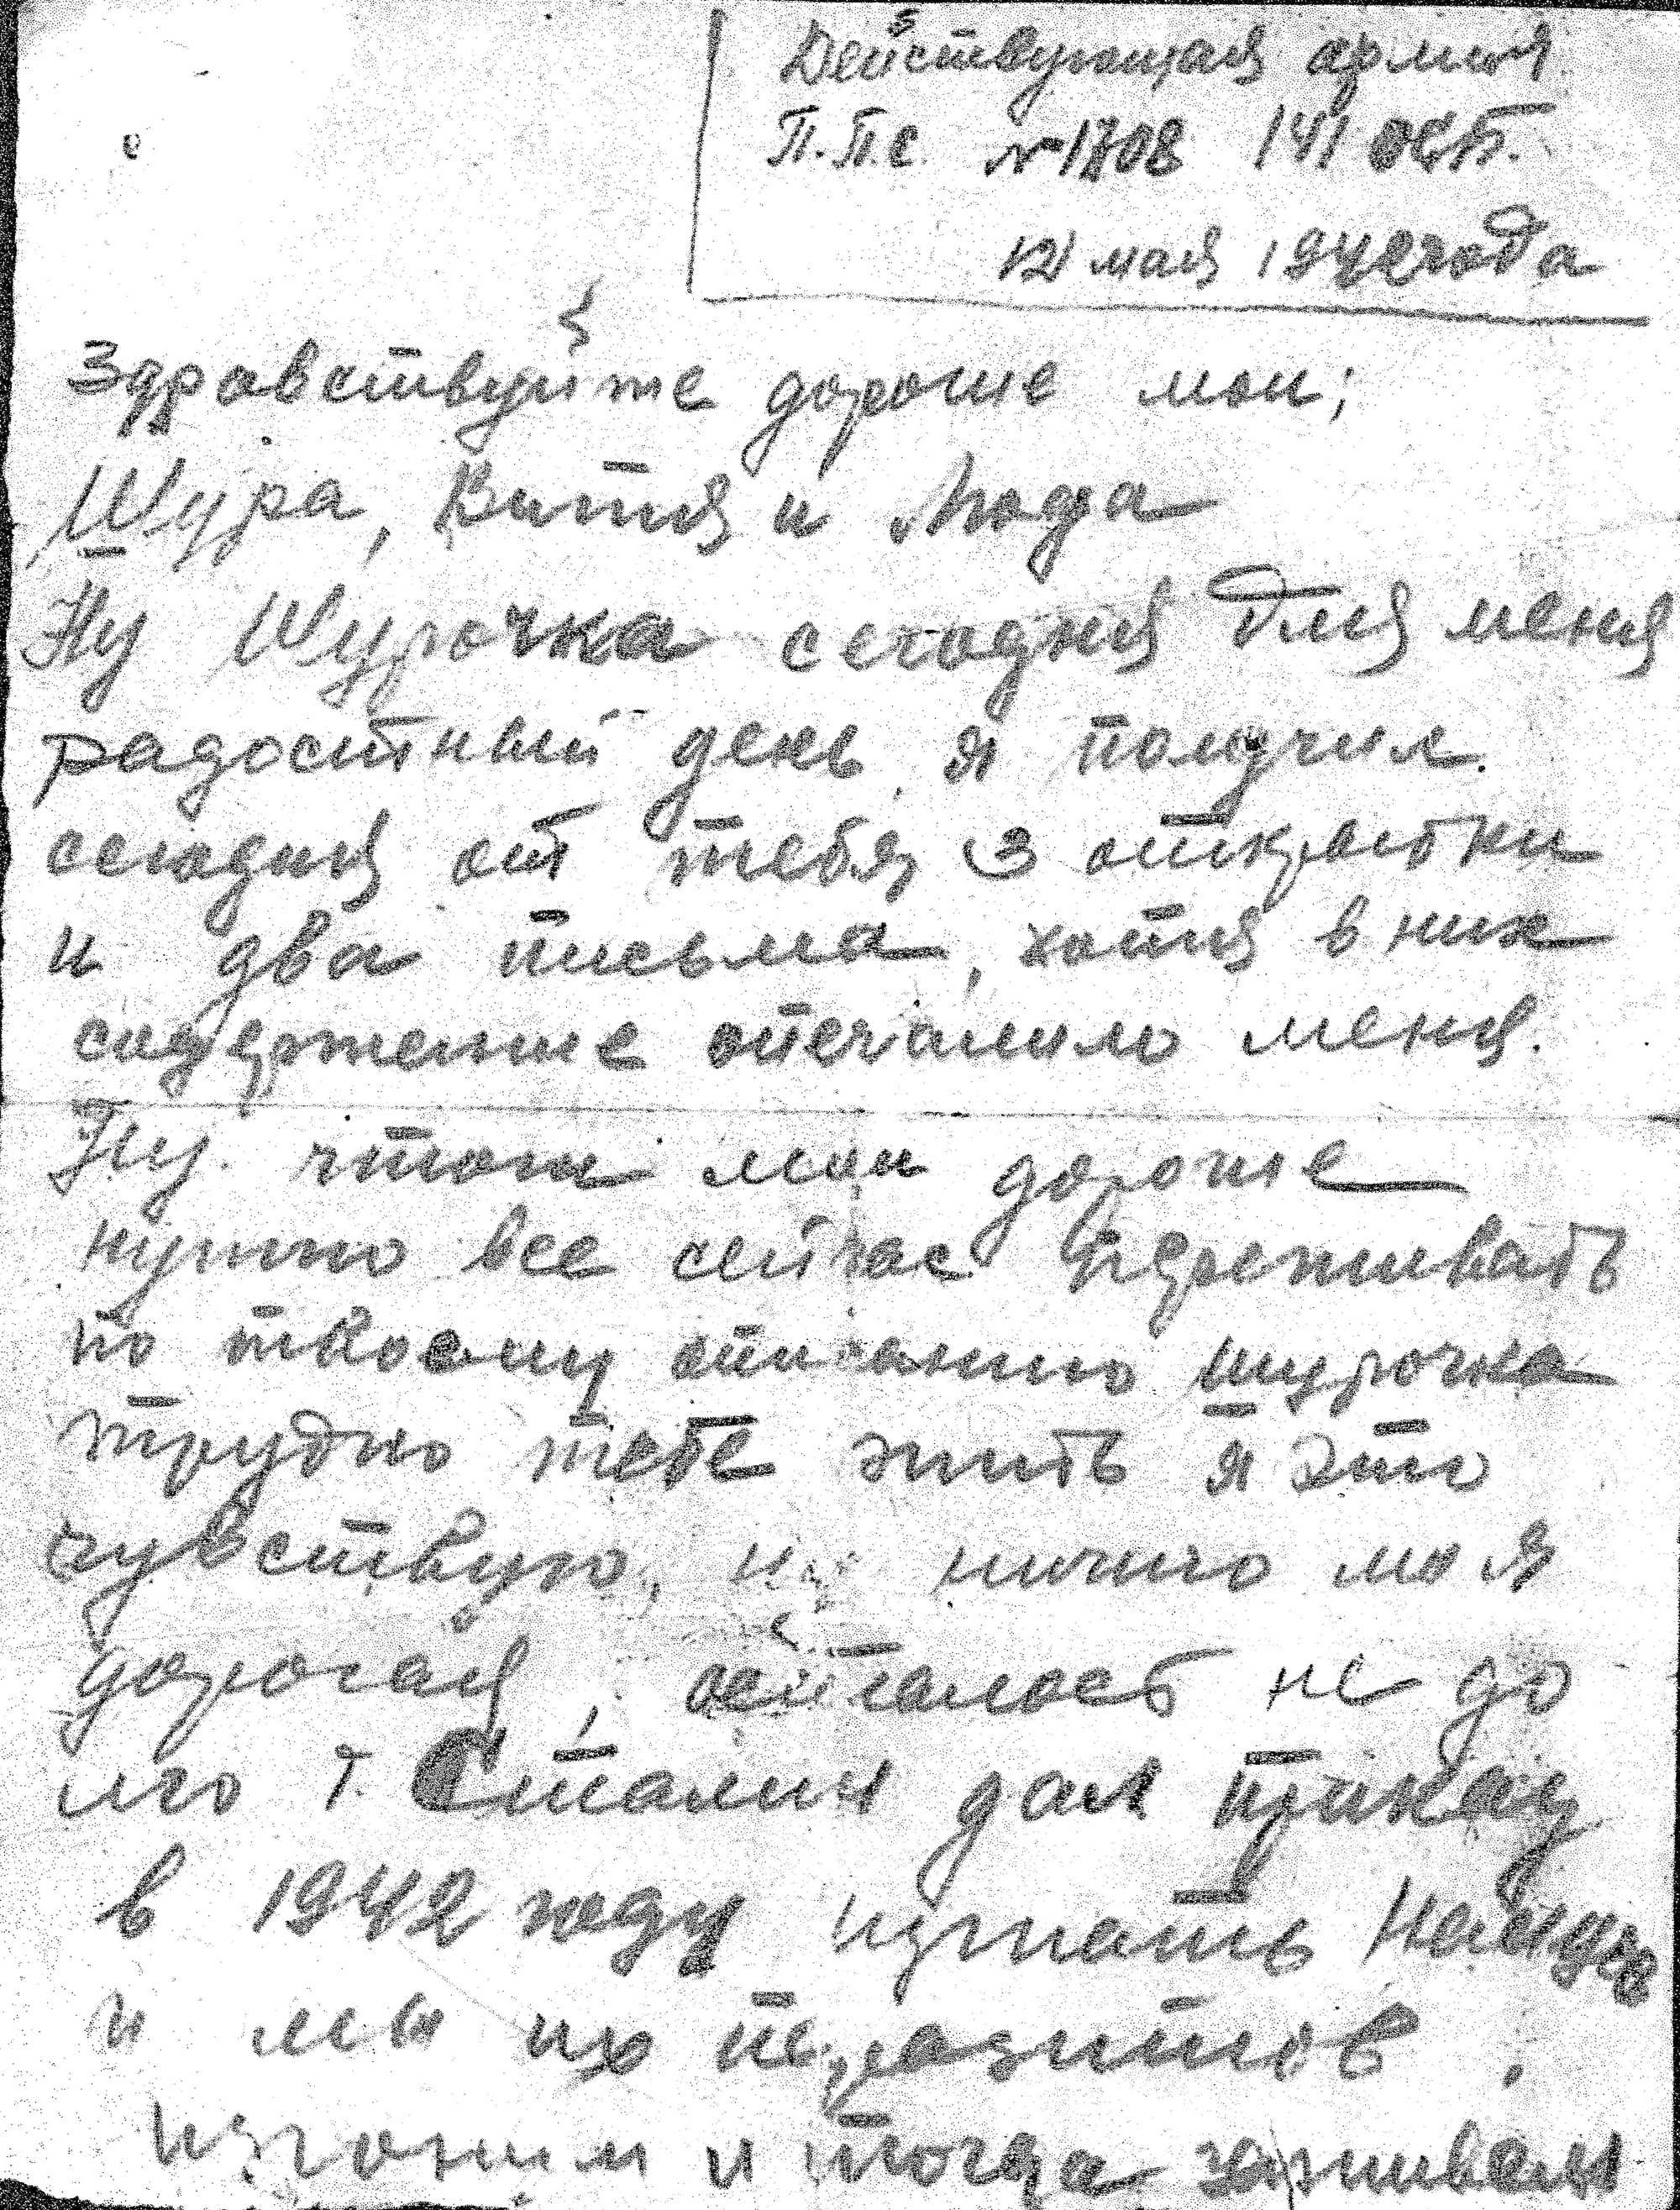 Действующая армия
П.П.С. №1708 141 ОСБ.
12 мая 1942 года
Здравствуйте дорогие мои;
Шура, Витя и Люда
Ну Шурочка сегодня для меня
радостный день, я получил
сегодня от тебя 3 открытки
и два письма, хотя в них
содержение опечалило меня.
Ну. чтож мои дорогие
нужно все сейчас переживать
по твоему описанию шурочка
трудно тебе жить я это
чувствую, ну ничиго моя
дорогая, осталось не до
лго т. Сталин дал приказ
в 1942 году изгнать Немцев
и мы их поразитов,
изгоним и тогда заживем